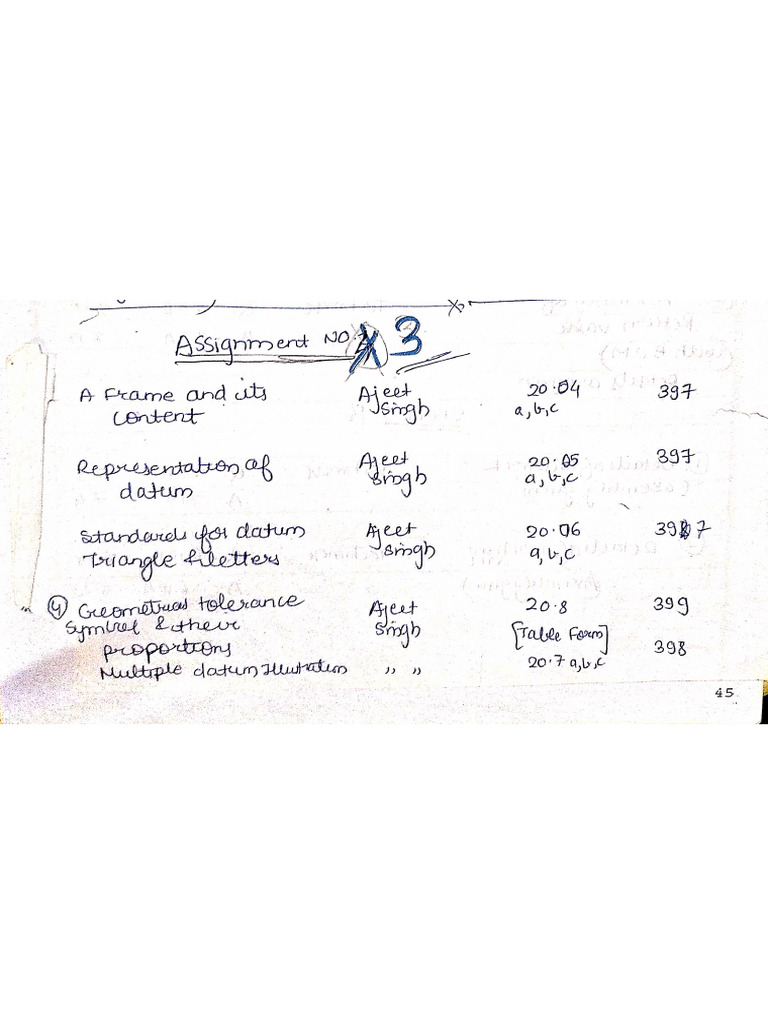 Assignment NO. 3
A Frame and its Ajeet 20.04 397
Content Singh a, b, c
Representation of Ajeet 20.05 397
datum Singh a, b, c
Standards for datum Ajeet 20.06 397
Triangle & letters Singh a, b, c
④ Geometrical tolerance Ajeet 20.8 399
Symbol & their Singh [Table Form]
proportions 398
Multiple datum Illustration ,, ,, 20.7 a, b, c
45